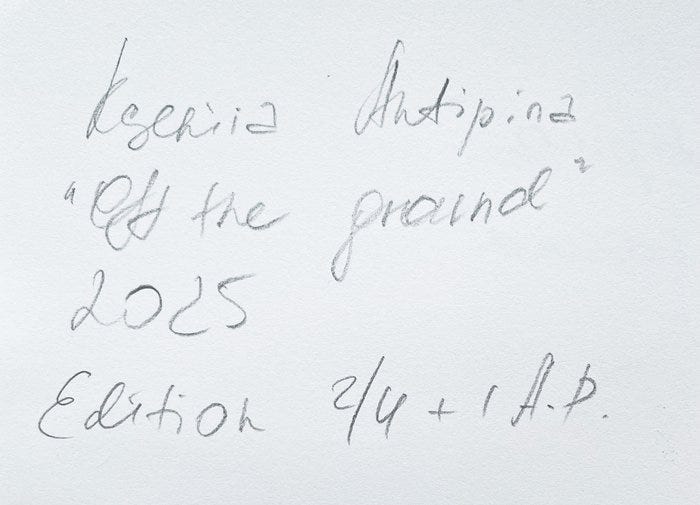 Kseniia Antipina
"Off the ground"
2025
Edition 2/4 + 1 A.P.